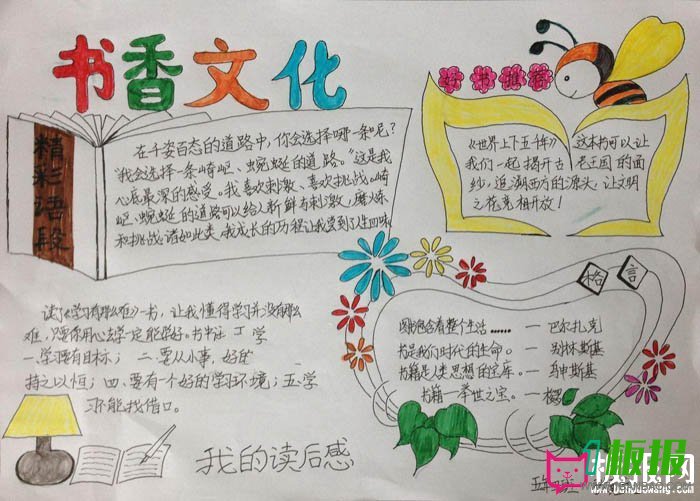 书香文化
好书推荐
精彩语段
在千姿百态的道路中，你会选择哪一条呢？
“我会选择一条崎岖、蜿蜒的道路。”这是我
心底最深的感受。我喜欢刺激、喜欢挑战。崎
岖、蜿蜒的道路可以给人新鲜与刺激，磨炼
和挑战，诸如此类，我成长的历程让我尝到了人生四味
《世界上下五千年》
我们一起揭开古
纱，追溯西方的源头，
之花竞相开放！
这本书可以让
老王国的面
让文明
格言
图书包含着整个生活……—巴尔扎克
书是我们时代的生命。—别林斯基
书籍是人类思想的宝库。—乌申斯基
书籍—举世之宝。—梭
读了《学习有那么难》一书，让我懂得学习并没有那么
难，只要你用心去学一定能学好。书中
一、学习要有目标；二、要从小事，
持之以恒；四、要有一个好的学习环境；五、学
习不能找借口。
我的读后感
板报